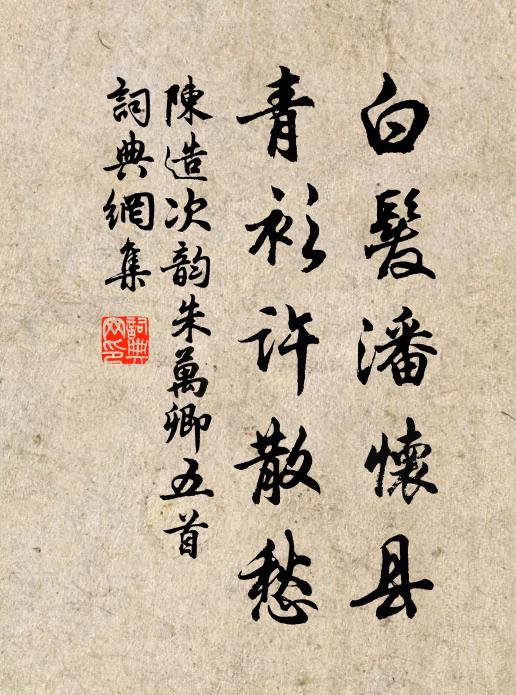 白髮潘懷县
青衫许散愁
陳造次韵朱萬卿五首
詞典網集
詞典网印